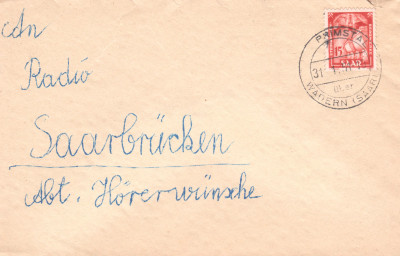 cdn
Radio
Saarbrücken
Abt. Hörerwünsche
15
SAAR
PRIMSTAL
31
WADERN (SAAR)